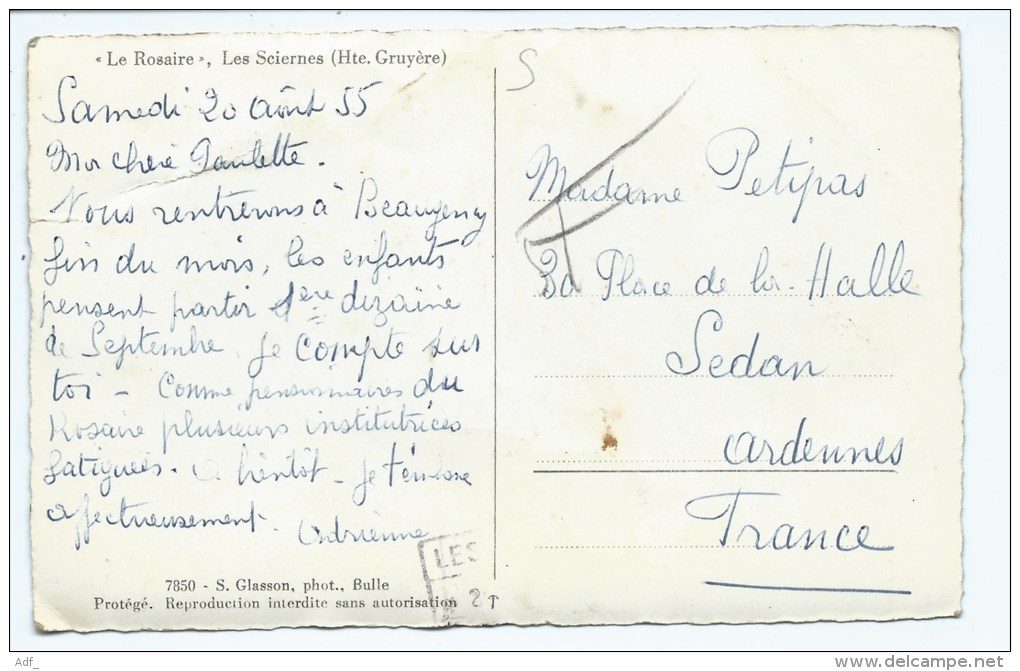 « Le Rosaire », Les Sciernes (Hte. Gruyère)
Samedi 20 Août 55
Ma chère Paulette.
Nous rentrerons à Beaugency
fin du mois, les enfants
pensent partir 1ère dizaine
de Septembre. Je compte sur
toi - Comme pensionnaires du
Rosaire plusieurs institutrices
fatiguées. A bientôt - Je t'embrasse
affectueusement.
Adrienne
7850 - S. Glasson, phot., Bulle
Protégé. Reproduction interdite sans autorisation
LES
2
S
Madame Petipas
30 Place de la Halle
Sedan
Ardennes
France
Adf_
www.delcampe.net